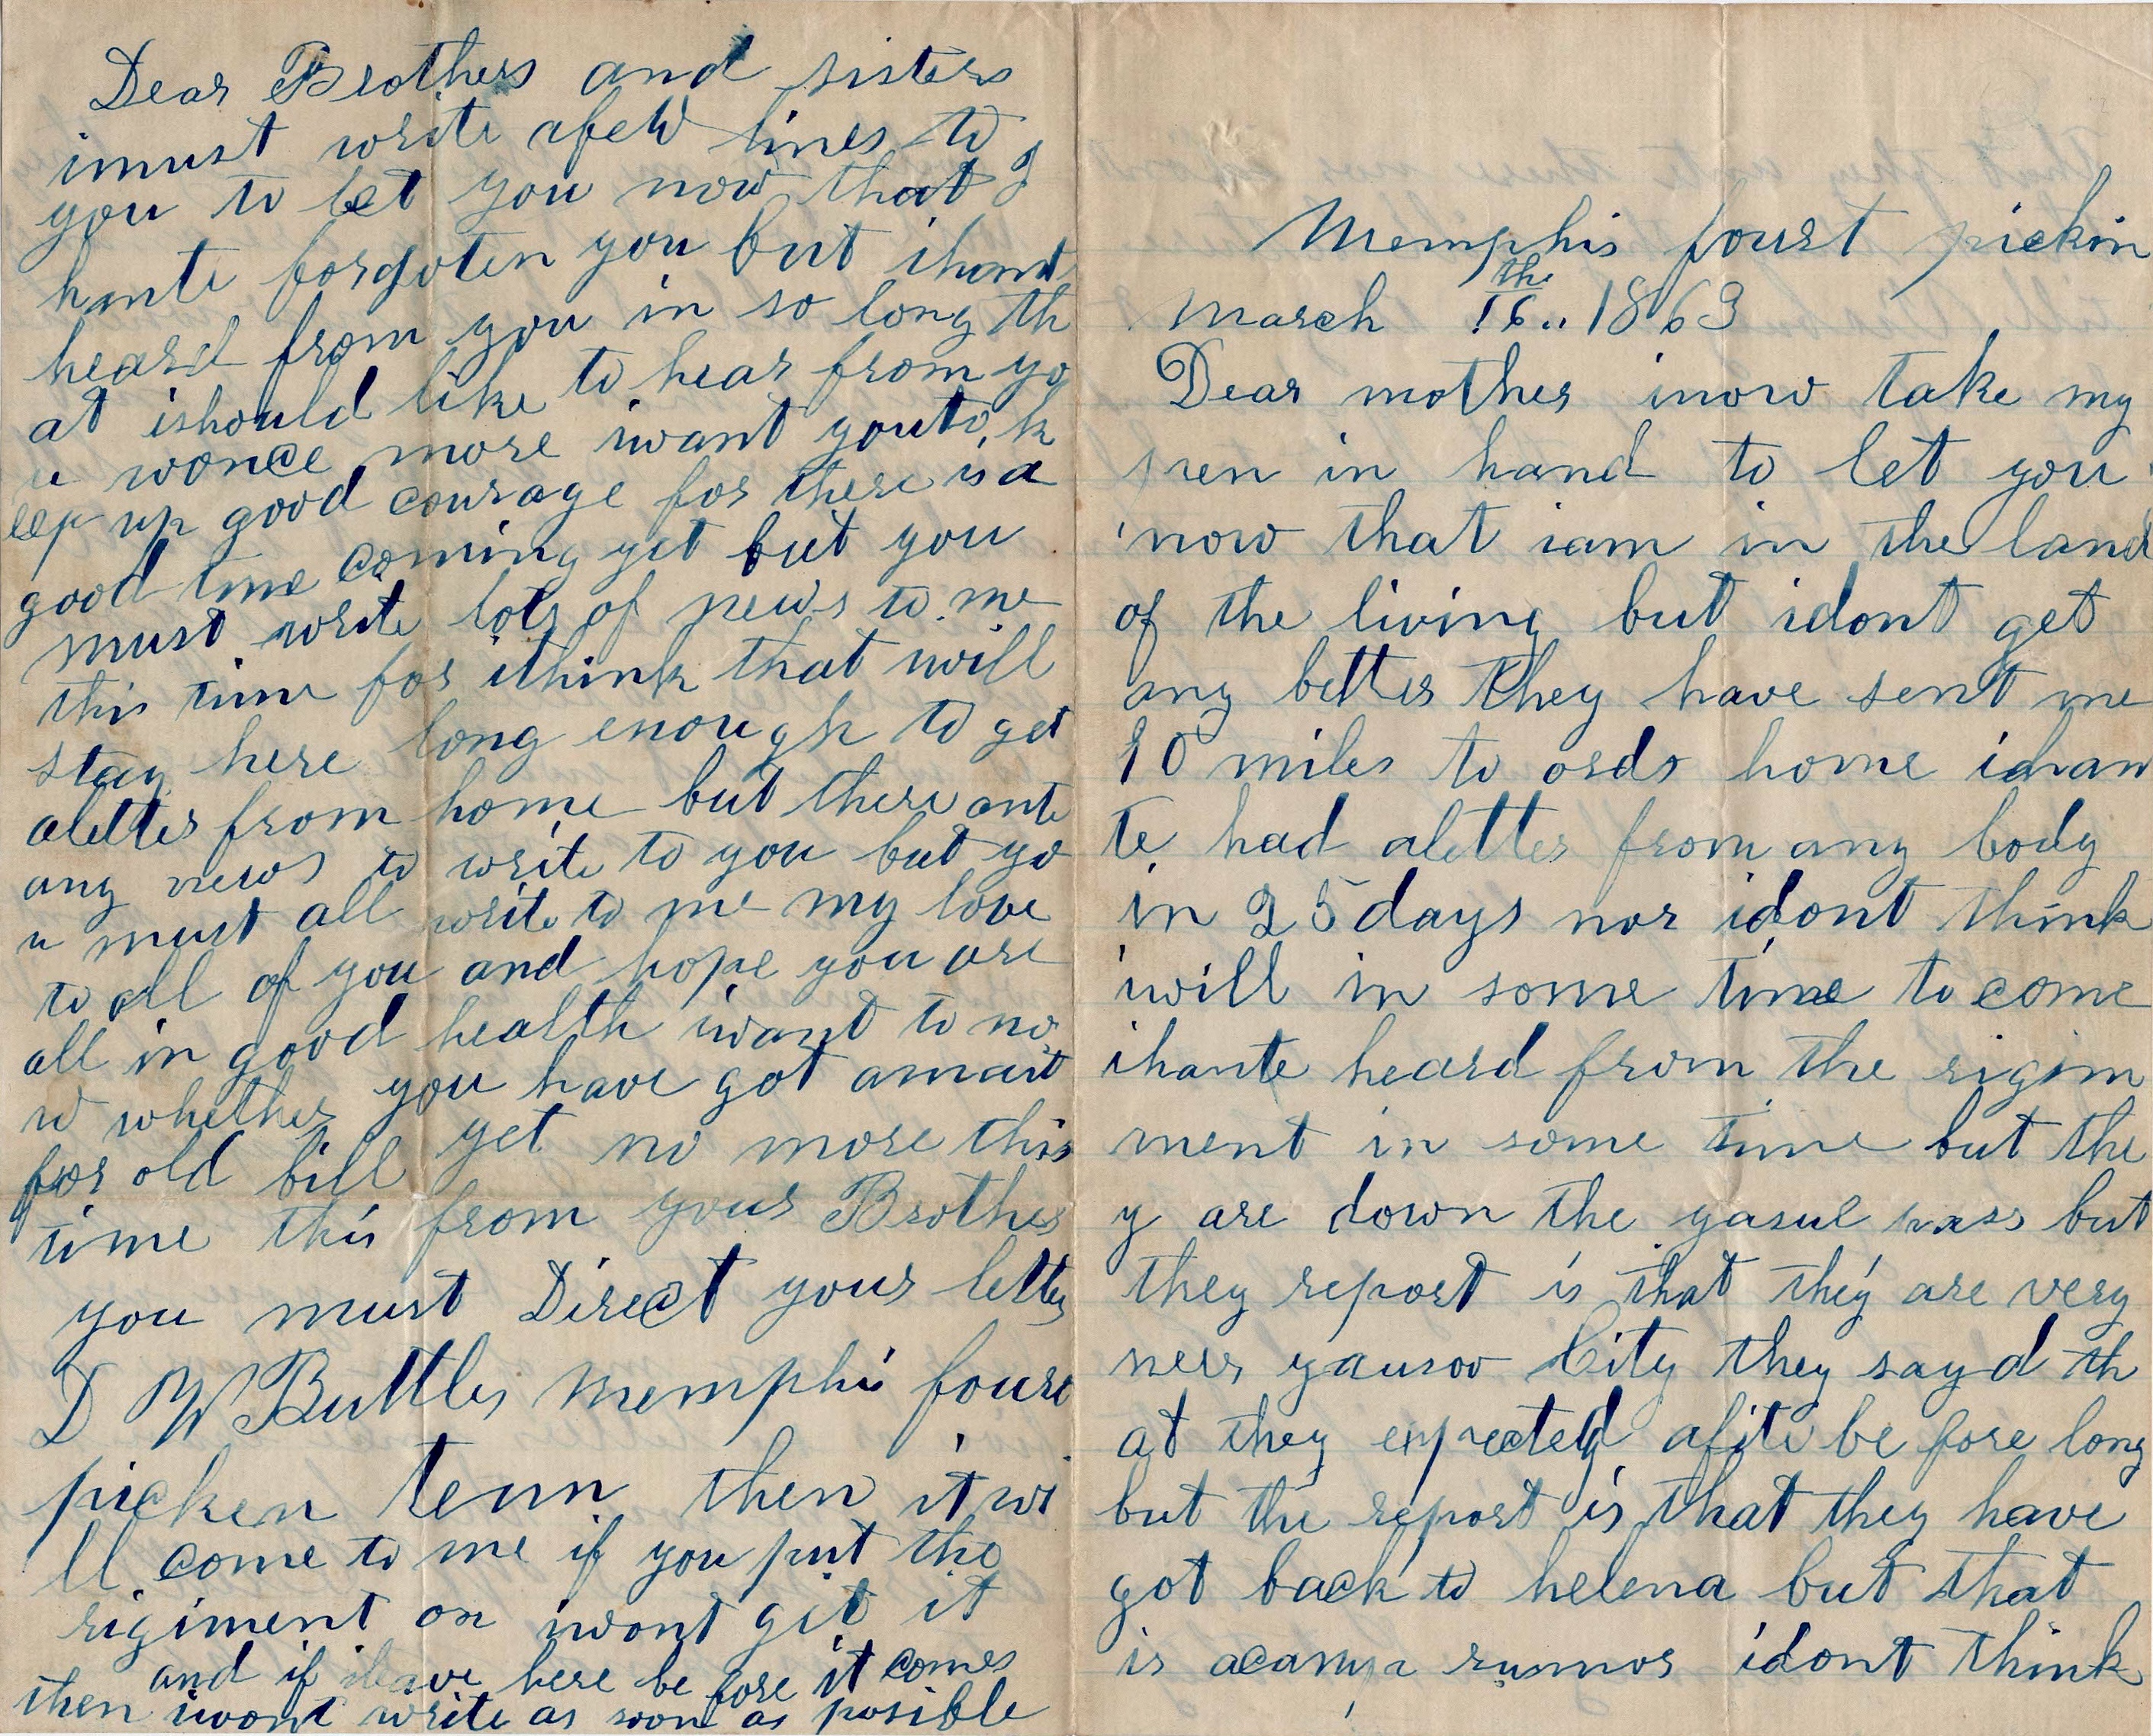 Memphis fourt pickin
march 16the 1863
Dear mother inow take my
pen in hand to let you
now that iam in the land
of the living but idont get
any better they have sent me
10 miles to ords home ihan
te had aletter from any body
in 25 days nor idont think
iwill in some time to come
ihante heard from the rigim
ment in some time but the
y are down the yasue pass but
they report is that they are very
neer yausoo City they sayd th
at they expected afite be fore long
but the report is that they have
got back to helena but that
is acamp rumor idont think
Dear Brothers and sisters
imust write afew lines to
you to let you now that I
hante forgoten you but ihant
heard from you in so long th
at ishould like to hear from yo
u wonce more iwant youto k
eep up good courage for there is a
good time coming yet but you
must write lots of news to me
this time for ithink that iwill
stay here long enough to get
aletter from home but there ante
any news to write to you but yo
u must all write to me my love
to all of you and hope you are
all in good health iwant to no
w whether you have got amait
for old bill yet no more this
time this from your Brother
you must Direct your letters
D W Buttles memphis fourt
picken tenn then it wi
ll come to me if you put the
rigiment on iwont git it
and if ileave here be fore it comes
then iwont write as soon as posible